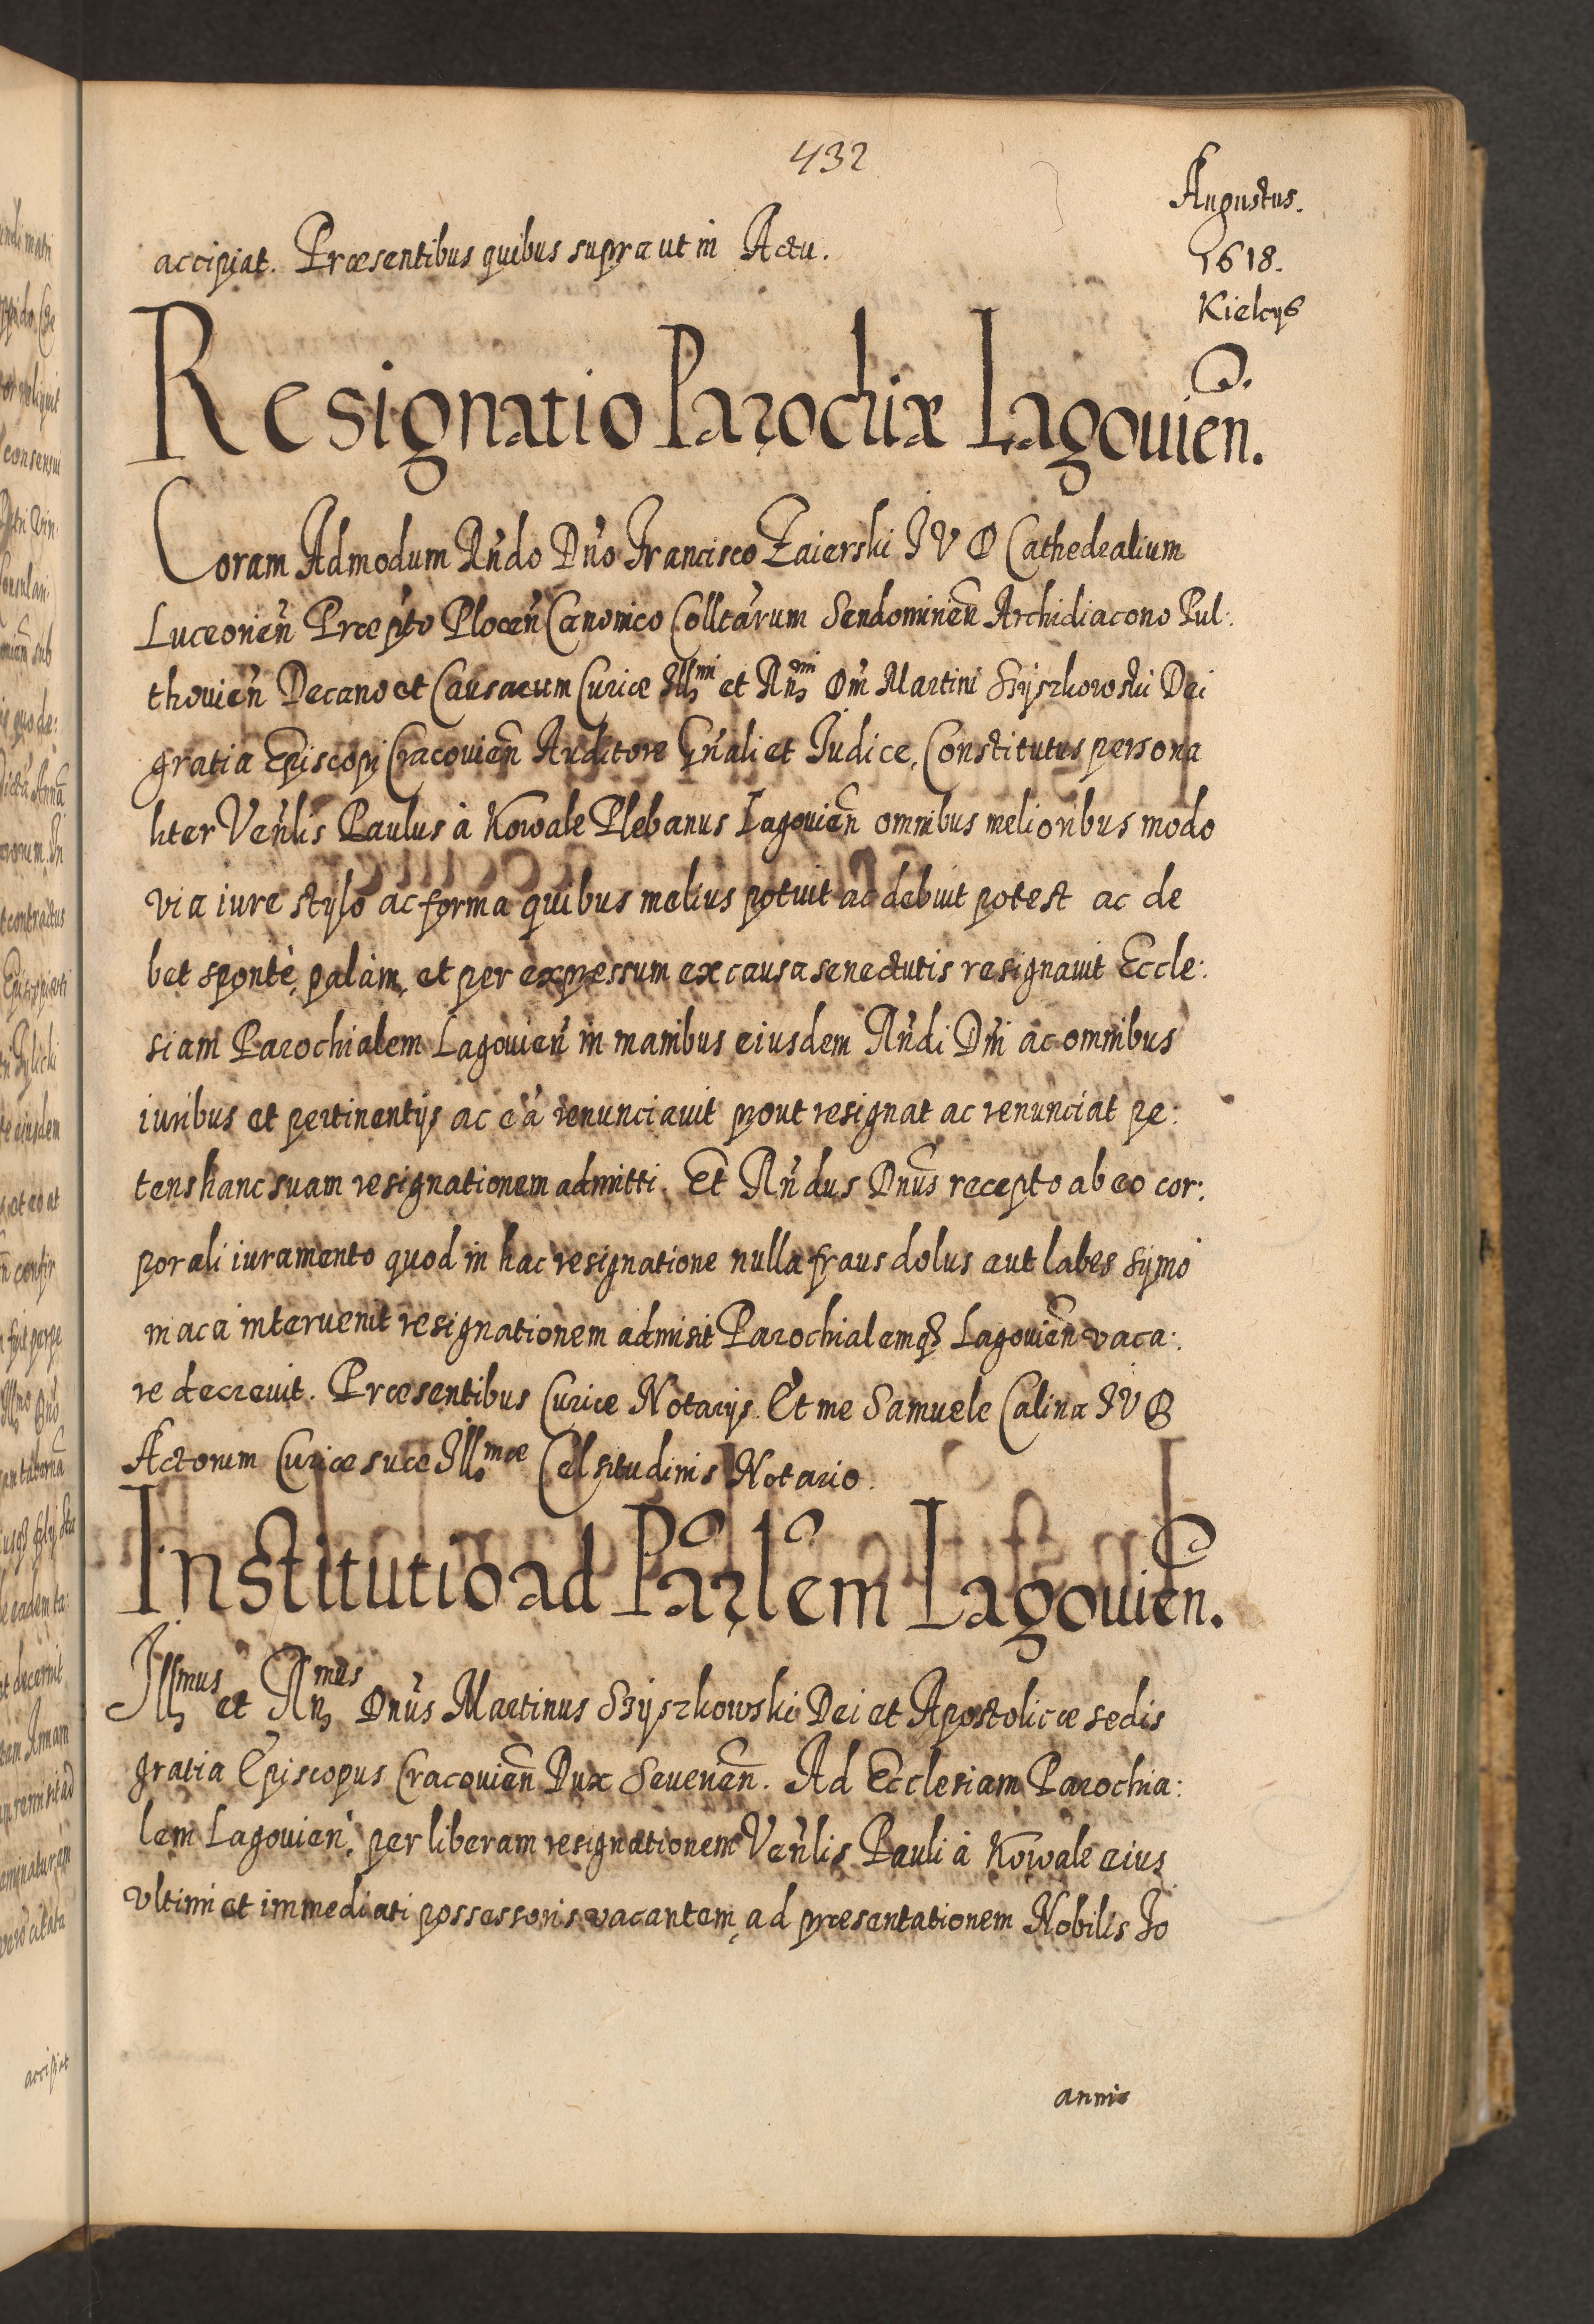 432
Augustus.
1618.
Kielcys
accipiat. Præsentibus quibus supra ut in Actu.
Resignatio Parochiæ Lagouien̄.
Coram Admodum Rn̄do Dn̄o Francisco Zaierski I V D Cathedralium
Luceonien̄ Præpto Plocen̄ Canonico Colltarum Sendomirien̄ Archidiacono Pul:
thouien̄ Decano et Causarum Curiæ Illmi et Rnmi Dm̄ Martini Szyszkowski Dei
gratia Episcopi Cracouien̄ Auditore Gn̄ali et Iudice, Constitutus persona
liter Ven̄lis Paulus à Kowale Plebanus Lagouien̄ omnibus melioribus modo
via iure stylo ac forma quibus melius potuit ac debuit potest ac de
bet sponte, palàm, et per expressum ex causa senectutis resignauit Eccle:
siam Parochialem Lagouien̄ in manibus eiusdem Rn̄di Dn̄i ac omnibus
iuribus et pertinentijs ac eā renunciauit prout resignat ac renunciat pe:
tens hanc suam resignationem admitti. Et Rn̄dus Dn̄us recepto ab eo cor:
porali iuramento quod in hac resignatione nulla fraus dolus aut labes symo
niaca interuenit resignationem admisit Parochialemq3 Lagouien̄ vaca:
re decreuit. Præsentibus Curiæ Notarijs. Et me Samuele Calina I V D
Actorum Curiæ suæ Illmæ Celsitudinis Notario.
Institutio ad Par̄lem Lagouien̄.
Illmus et Rnmus Dn̄us Martinus Szyszkowski Dei et Apostolicæ sedis
gratia Episcopus Cracouien̄ Dux Seuerien̄. Ad Ecclesiam Parochia:
lem Lagouien̄, per liberam resignationem Ven̄lis Pauli à Kowale eius
vltimi et immediati possessoris vacantem, ad præsentationem Nobilis Io
annis